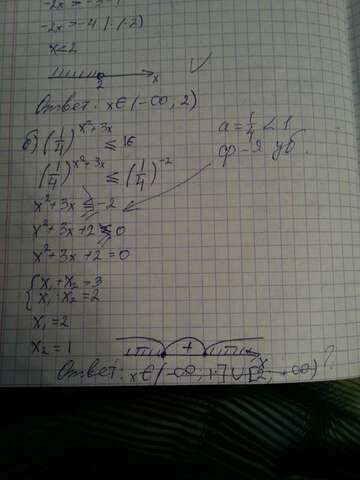 -2x > -3-1
-2x > -4 |:(-2)
x < 2
2 x
Ответ: x∈(-∞, 2)
б) (1/4)^(x²+3x) ≤ 16
a = 1/4 < 1
ф-я уб.
(1/4)^(x²+3x) ≤ (1/4)^(-2)
x²+3x ≥ -2
x²+3x+2 ≥ 0
x²+3x+2=0
{x₁+x₂=3
x₁·x₂=2
x₁=2
x₂=1
+
Ответ: x∈(-∞, 1]∪[2, +∞) ?